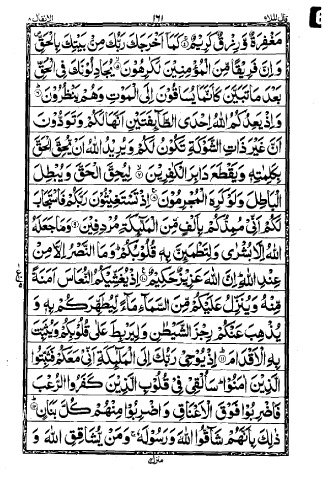 قال الملأ ٩ ١٦١ الانفال ٨
مَغْفِرَةٌ وَّرِزْقٌ كَرِيْمٌ ۝ كَمَاۤ اَخْرَجَكَ رَبُّكَ مِنْۢ بَيْتِكَ بِالْحَقِّ
وَاِنَّ فَرِيْقًا مِّنَ الْمُؤْمِنِيْنَ لَكٰرِهُوْنَ ۝ يُجَادِلُوْنَكَ فِي الْحَقِّ
بَعْدَ مَا تَبَيَّنَ كَاَنَّمَا يُسَاقُوْنَ اِلَى الْمَوْتِ وَهُمْ يَنْظُرُوْنَ ۝
وَاِذْ يَعِدُكُمُ اللّٰهُ اِحْدَى الطَّآئِفَتَيْنِ اَنَّهَا لَكُمْ وَتَوَدُّوْنَ
اَنَّ غَيْرَ ذَاتِ الشَّوْكَةِ تَكُوْنُ لَكُمْ وَيُرِيْدُ اللّٰهُ اَنْ يُّحِقَّ الْحَقَّ
بِكَلِمٰتِهٖ وَيَقْطَعَ دَابِرَ الْكٰفِرِيْنَ ۝ لِيُحِقَّ الْحَقَّ وَيُبْطِلَ
الْبَاطِلَ وَلَوْ كَرِهَ الْمُجْرِمُوْنَ ۝ اِذْ تَسْتَغِيْثُوْنَ رَبَّكُمْ فَاسْتَجَابَ
لَكُمْ اَنِّيْ مُمِدُّكُمْ بِاَلْفٍ مِّنَ الْمَلٰٓئِكَةِ مُرْدِفِيْنَ ۝ وَمَا جَعَلَهُ
اللّٰهُ اِلَّا بُشْرٰى وَلِتَطْمَئِنَّ بِهٖ قُلُوْبُكُمْ وَمَا النَّصْرُ اِلَّا مِنْ
عِنْدِ اللّٰهِ اِنَّ اللّٰهَ عَزِيْزٌ حَكِيْمٌ ۝ اِذْ يُغَشِّيْكُمُ النُّعَاسَ اَمَنَةً
مِّنْهُ وَيُنَزِّلُ عَلَيْكُمْ مِّنَ السَّمَآءِ مَآءً لِّيُطَهِّرَكُمْ بِهٖ وَ
يُذْهِبَ عَنْكُمْ رِجْزَ الشَّيْطٰنِ وَلِيَرْبِطَ عَلٰى قُلُوْبِكُمْ وَيُثَبِّتَ
بِهِ الْاَقْدَامَ ۝ اِذْ يُوْحِيْ رَبُّكَ اِلَى الْمَلٰٓئِكَةِ اَنِّيْ مَعَكُمْ فَثَبِّتُوا
الَّذِيْنَ اٰمَنُوْا سَاُلْقِيْ فِيْ قُلُوْبِ الَّذِيْنَ كَفَرُوا الرُّعْبَ
فَاضْرِبُوْا فَوْقَ الْاَعْنَاقِ وَاضْرِبُوْا مِنْهُمْ كُلَّ بَنَانٍ ۝
ذٰلِكَ بِاَنَّهُمْ شَآقُّوا اللّٰهَ وَرَسُوْلَهٗ وَمَنْ يُّشَاقِقِ اللّٰهَ وَ
منزل ٢